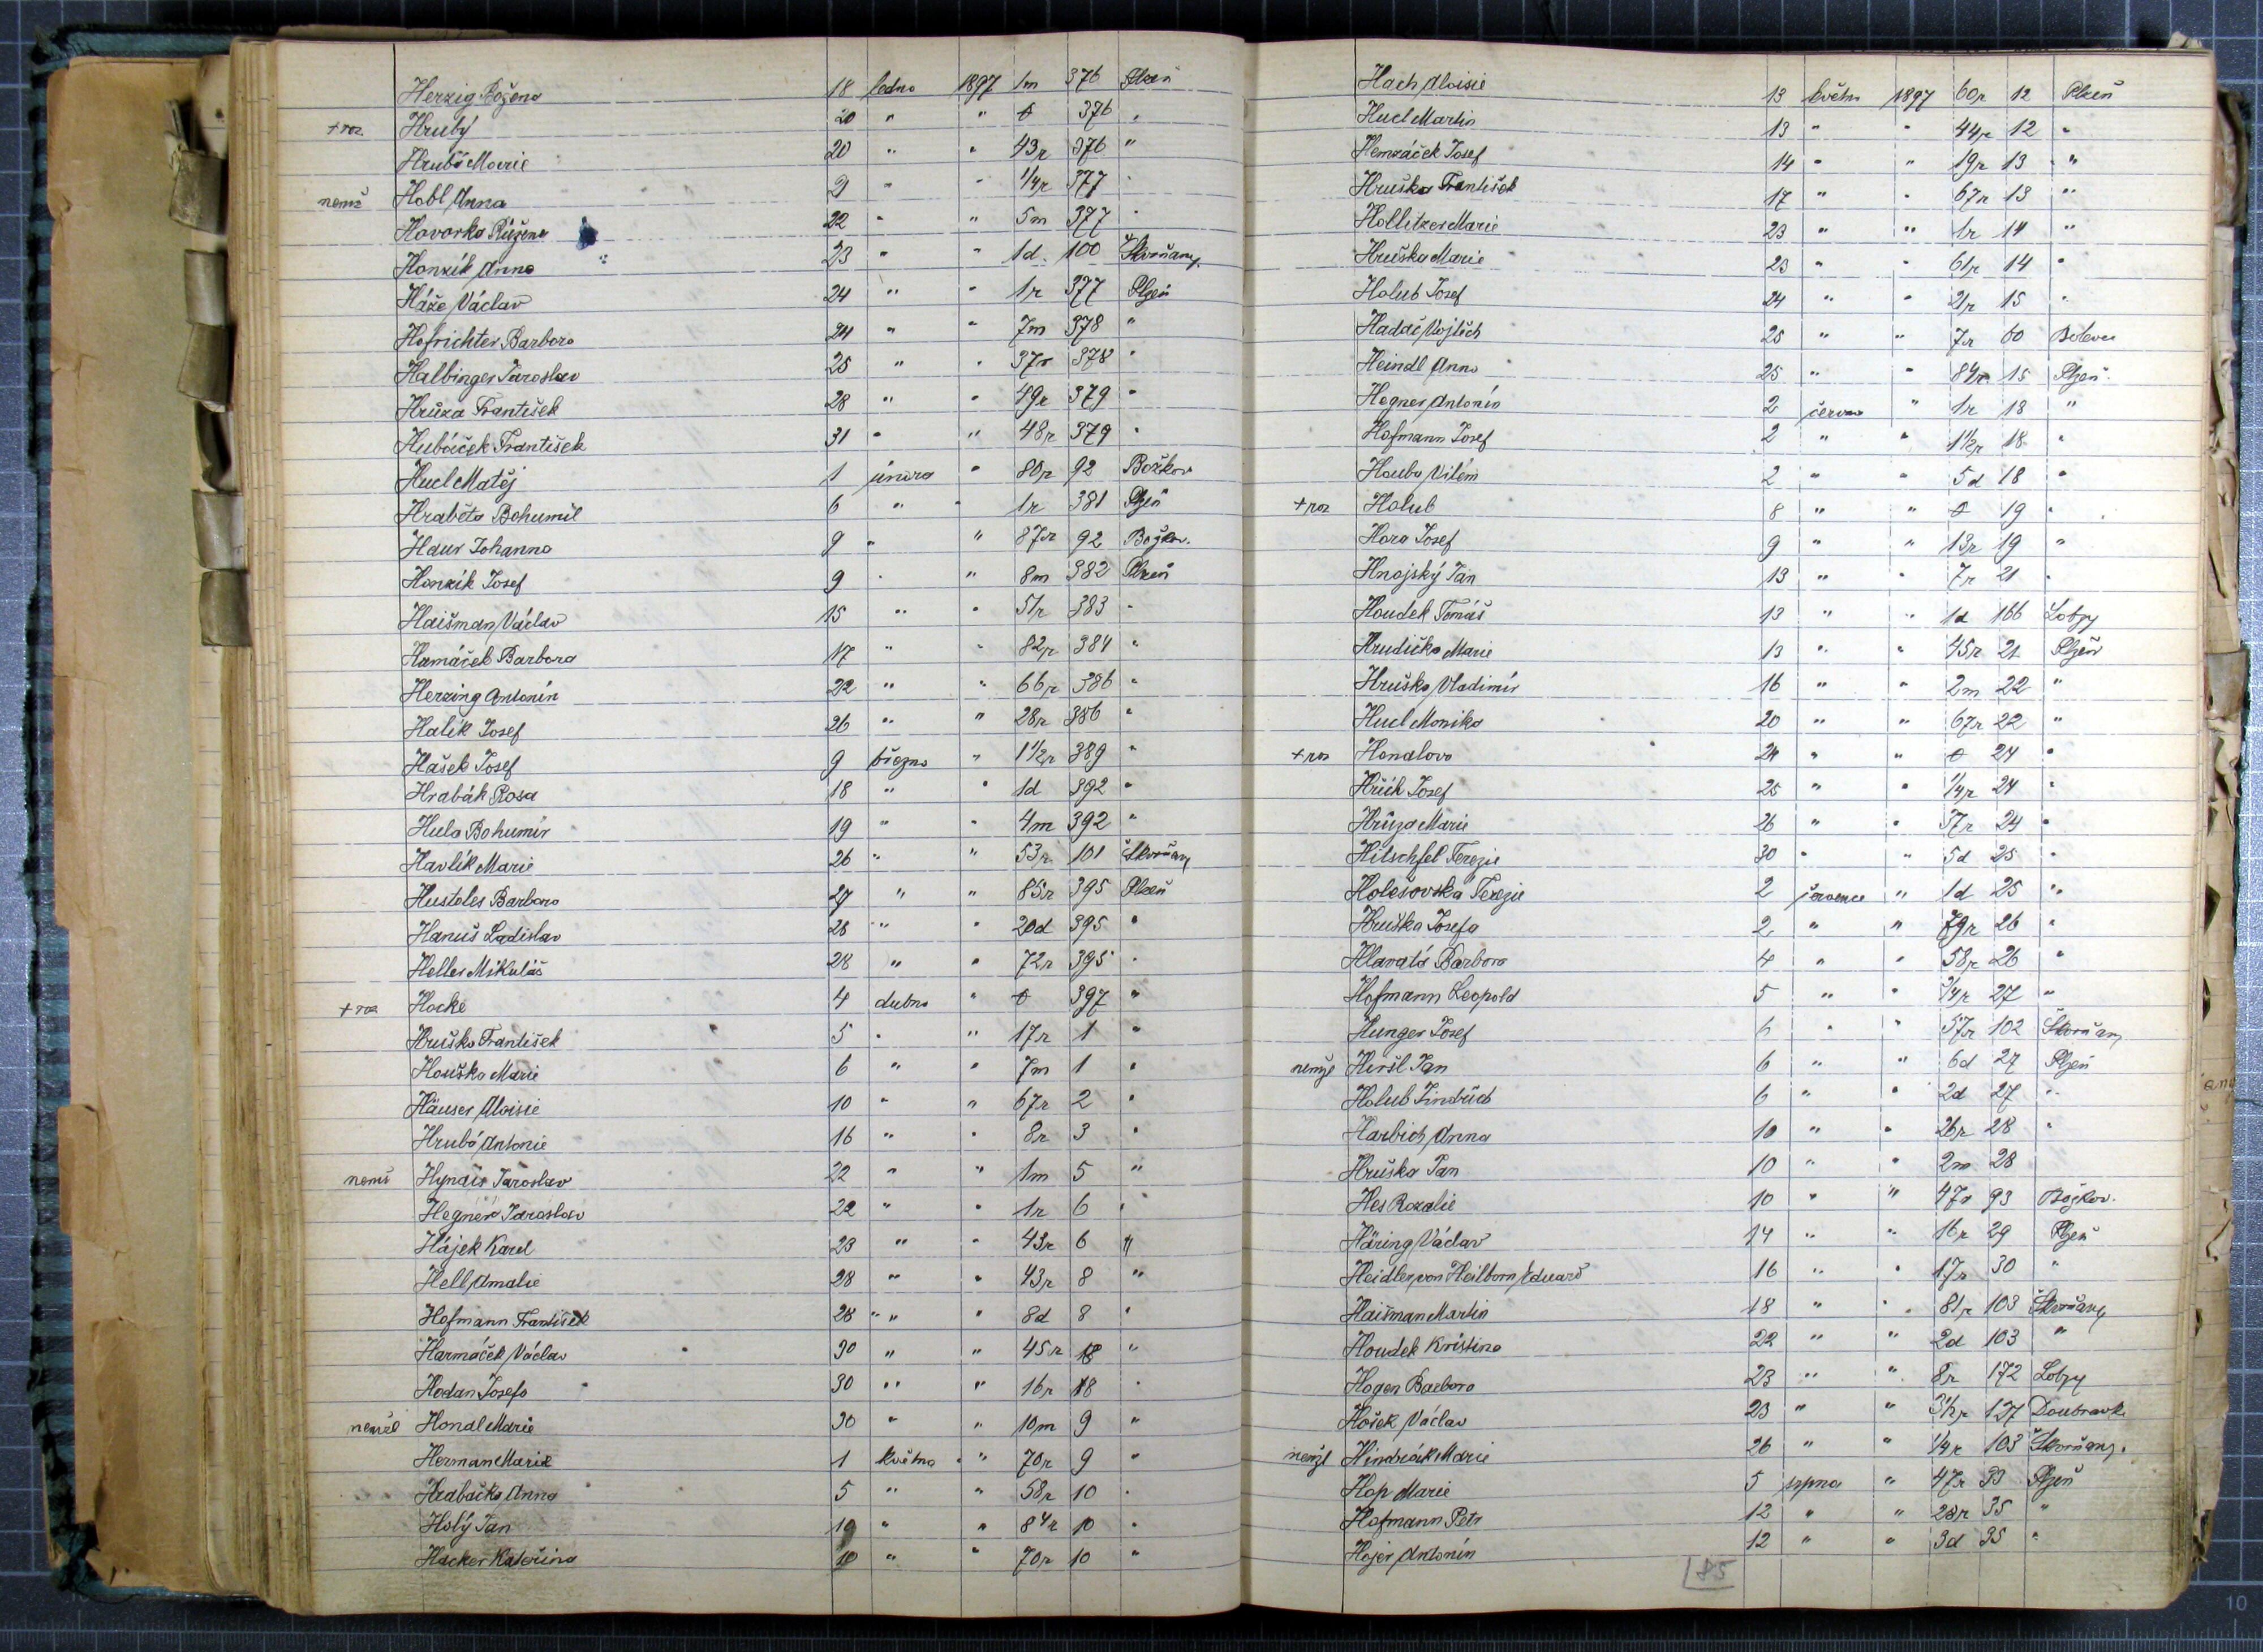 Herzig Božena 18 ledna 1897 1m 376 Plzeň
+ roz. Hrubý 20 " " 0 376 "
Hrubá Marie 20 " " 43r 376 "
nemž Hobl Anna 21 " " 1/4r 377 "
Hovorka Růžena 22 " " 5m 377 "
Honzík Anna 23 " " 1d. 100 Skvrňany
Háže Václav 24 " " 1r 377 Plzeň
Hofrichter Barbora 24 " " 7m 378 "
Halbinger Jaroslav 25 " " 37r 378 "
Hrůza František 28 " " 49r 379 "
Hubáček František 31 " " 48r 379 "
Hucl Matěj 1 února " 80r 92 Božkov
Hraběta Bohumil 6 " " 1r 381 Plzeň
Haur Johanna 9 " " 87r 92 Božkov.
Honzík Josef 9 " " 8m 382 Plzeň
Haišman Václav 15 " " 51r 383 "
Hamáček Barbora 17 " " 82r 384 "
Herzing Antonín 22 " " 66r 386 "
Halík Josef 26 " " 28r 386 "
Hašek Josef 9 března " 1 1/2r 389 "
Hrabák Rosa 18 " " 1d 392 "
Hula Bohumír 19 " " 4m 392 "
Havlík Marie 26 " " 53r 101 Skvrňany
Husteles Barbora 27 " " 85r 395 Plzeň
Hanuš Ladislav 28 " " 20d 395 "
Heller Mikuláš 28 " " 72r 395 "
+ roz Hocke 4 dubna " 0 397 "
Hruška František 5 " " 17r 1 "
Houška Marie 6 " " 7m 1 "
Häuser Aloisie 10 " " 67r 2 "
Hrubá Antonie 16 " " 8r 3 "
nemž Hynais Jaroslav 22 " " 1m 5 "
Hegner Jaroslav 22 " " 1r 6 "
Hájek Karel 23 " " 43r 6 "
Hell Amalie 28 " " 43r 8 "
Hofmann František 28 " " 8d 8 "
Harmáček Václav 30 " " 45r 18 "
Hodan Josefa 30 " " 16r 18 "
nemžl Honal Marie 30 " " 10m 9 "
Herman Marie 1 května " 70r 9 "
Hrabačka Anna 5 " " 58r 10 "
Holý Jan 10 " " 84r 10 "
Hacker Kateřina 10 " " 70r 10 "
Hach Aloisie 13 května 1897 60r 12 Plzeň
Hucl Martin 13 " " 44r 12 "
Hemzáček Josef 14 " " 19r 13 "
Hruška František 17 " " 67r 13 "
Hollitzer Marie 23 " " 1r 14 "
Hruška Marie 23 " " 61r 14 "
Holub Josef 24 " " 21r 15 "
Hadač Vojtěch 25 " " 7r 60 Bolevec
Heindl Anna 25 " " 84r 15 Plzeň.
Hegner Antonín 2 června " 1r 18 "
Hofmann Josef 2 " " 1 1/2r 18 "
Houba Vilém 2 " " 5d 18 "
+ roz Holub 8 " " 0 19 "
Hora Josef 9 " " 13r 19 "
Hnojský Jan 13 " " 7r 21 "
Houdek Tomáš 13 " " 1d 166 Lobzy
Hrudička Marie 13 " " 45r 21 Plzeň
Hruška Vladimír 16 " " 2m 22 "
Hucl Monika 20 " " 67r 22 "
+ roz Honalova 24 " " 0 24 "
Hřích Josef 25 " " 1/4r 24 "
Hrůza Marie 26 " " 57r 24 "
Hilschfel Terezie 30 " " 5d 25 "
Holešovská Terezie 2 července " 1d 25 "
Hruška Josefa 2 " " 79r 26 "
Hlavatá Barbora 4 " " 58r 26 "
Hofmann Leopold 5 " " 3/4r 27 "
Hunger Josef 6 " " 57r 102 Skvrňany
nemžl Heršl Jan 6 " " 6d 27 Plzeň
Holub Jindřich 6 " " 2d 27 "
Harbich Anna 10 " " 26r 28 "
Hruška Jan 10 " " 2m 28
Hes Rozalie 10 " " 47r 93 Božkov.
Häring Václav 14 " " 16r 29 Plzeň
Heidler von Heilborn Eduard 16 " " 17r 30 "
Haišman Martin 18 " " 81r 103 Skvrňany
Houdek Kristina 22 " " 2d 103 "
Hogen Barbora 23 " " 8r 172 Lobzy
Hošek Václav 23 " " 3 1/2r 127 Doubravk.
nemžl Hindrák Marie 26 " " 1/4r 103 Skvrňany.
Hop Marie 5 srpna " 47r 33 Plzeň
Hofmann Petr 12 " " 28r 35 "
Hojer Antonín 12 " " 3d 35 "
185
10